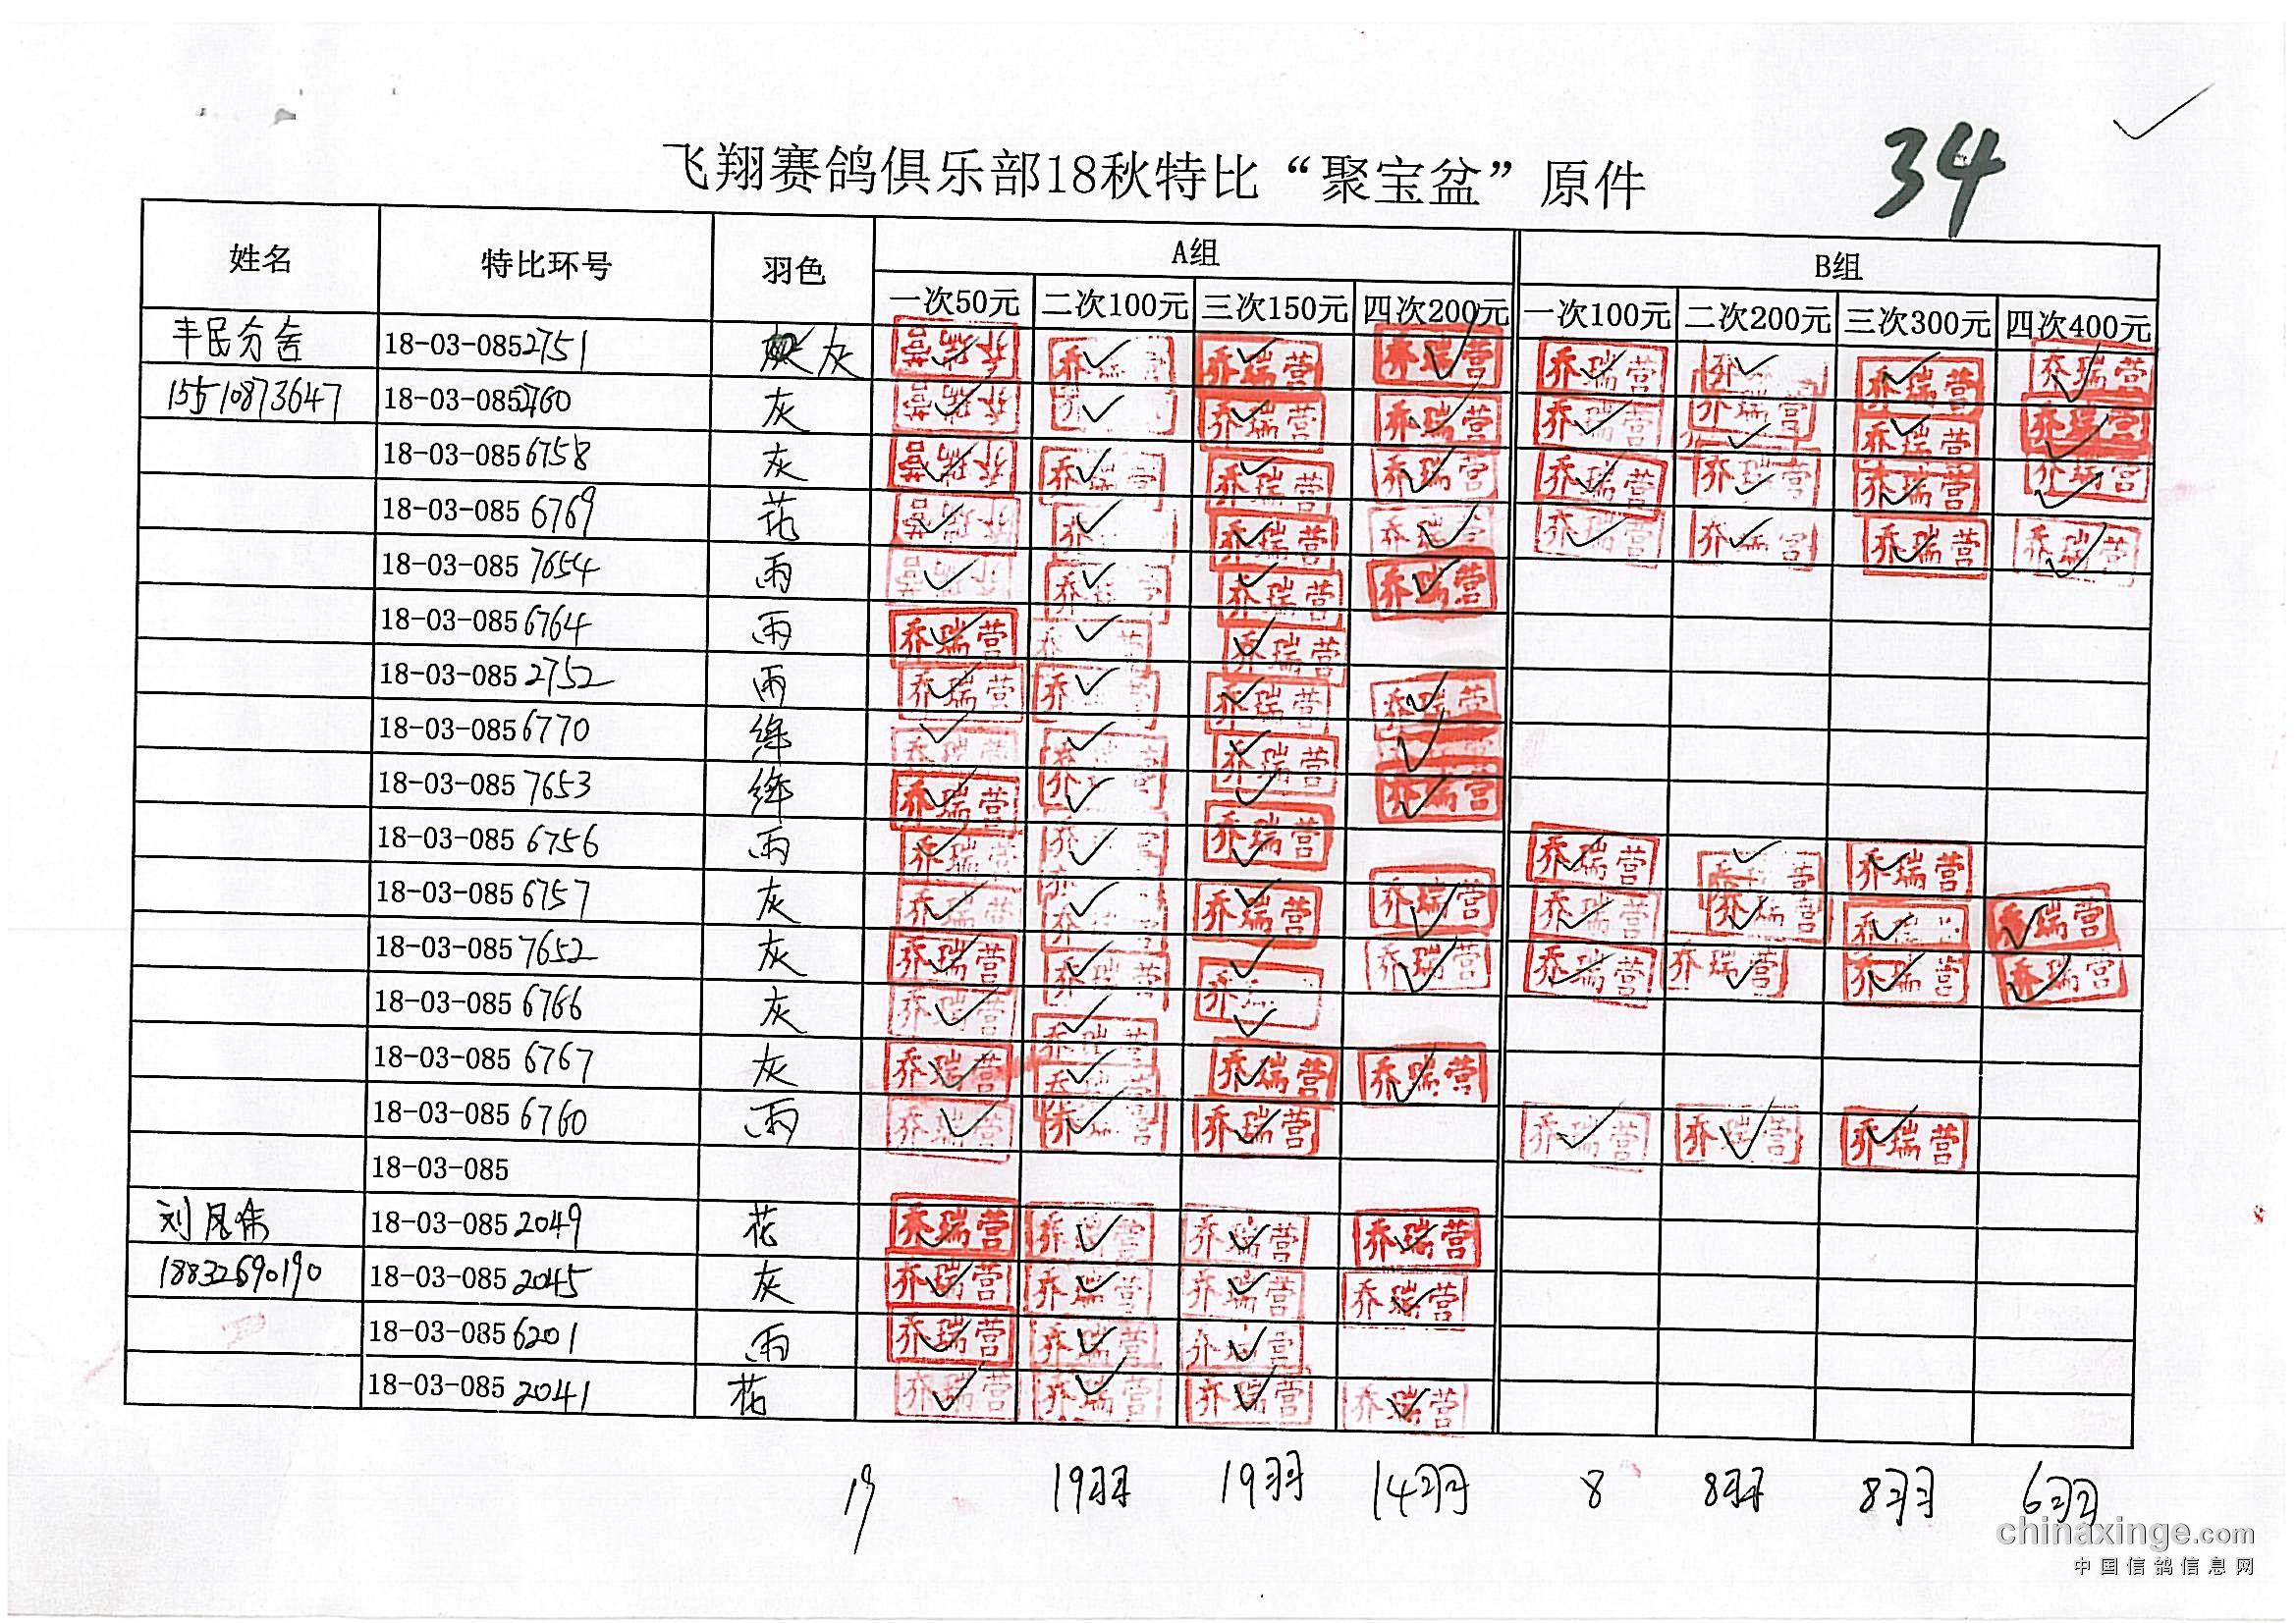 34
飞翔赛鸽俱乐部18秋特比“聚宝盆”原件
姓名 特比环号 羽色 A组 B组
一次50元 二次100元 三次150元 四次200元 一次100元 二次200元 三次300元 四次400元
丰民分舍 18-03-0852751 灰 乔瑞营 乔瑞营 乔瑞营 乔瑞营 乔瑞营 乔 乔瑞营 乔瑞营
15510873647 18-03-0852760 灰 乔瑞营 乔 乔瑞营 乔瑞营 乔瑞营 乔瑞营 乔瑞营 乔瑞营
18-03-0856758 灰 乔瑞营 乔瑞营 乔瑞营 乔瑞营 乔瑞营 乔瑞营 乔瑞营 乔瑞营
18-03-0856769 花 乔瑞营 乔 乔瑞营 乔瑞营 乔瑞营 乔瑞营 乔瑞营 乔瑞营
18-03-0857654 雨 乔瑞营 乔瑞营 乔瑞营 乔瑞营
18-03-0856764 雨 乔瑞营 乔 营 乔瑞营
18-03-0852752 雨 乔瑞营 乔瑞营 乔瑞营 乔瑞营
18-03-0856770 绛 乔瑞营 乔瑞营 乔瑞营
18-03-0857653 绛 乔瑞营 乔瑞营 乔瑞营
18-03-0856756 雨 乔瑞营 乔瑞营 乔瑞营 乔瑞营 乔瑞营 乔瑞营
18-03-0856757 灰 乔瑞营 乔瑞营 乔瑞营 乔瑞营 乔瑞营 乔瑞营 乔瑞营 乔瑞营
18-03-0857652 灰 乔瑞营 乔瑞营 乔 乔瑞营 乔瑞营 乔瑞营 乔瑞营 乔瑞营
18-03-0856766 灰 乔瑞营 乔瑞营
18-03-0856767 灰 乔瑞营 乔瑞营 乔瑞营 乔瑞营
18-03-0856760 雨 乔瑞营 乔瑞营 乔瑞营 乔瑞营 乔瑞营 乔瑞营
18-03-085
刘凤伟 18-03-0852049 花 乔瑞营 乔瑞营 乔瑞营 乔瑞营
18832690190 18-03-0852045 灰 乔瑞营 乔瑞营 乔瑞营 乔瑞营
18-03-0856201 雨 乔瑞营 乔瑞营 乔瑞营
18-03-0852041 花 乔瑞营 乔瑞营 乔瑞营 乔瑞营
19 19羽 19羽 14羽 8 8羽 8羽 6羽
chinaxinge.com
中国信鸽信息网